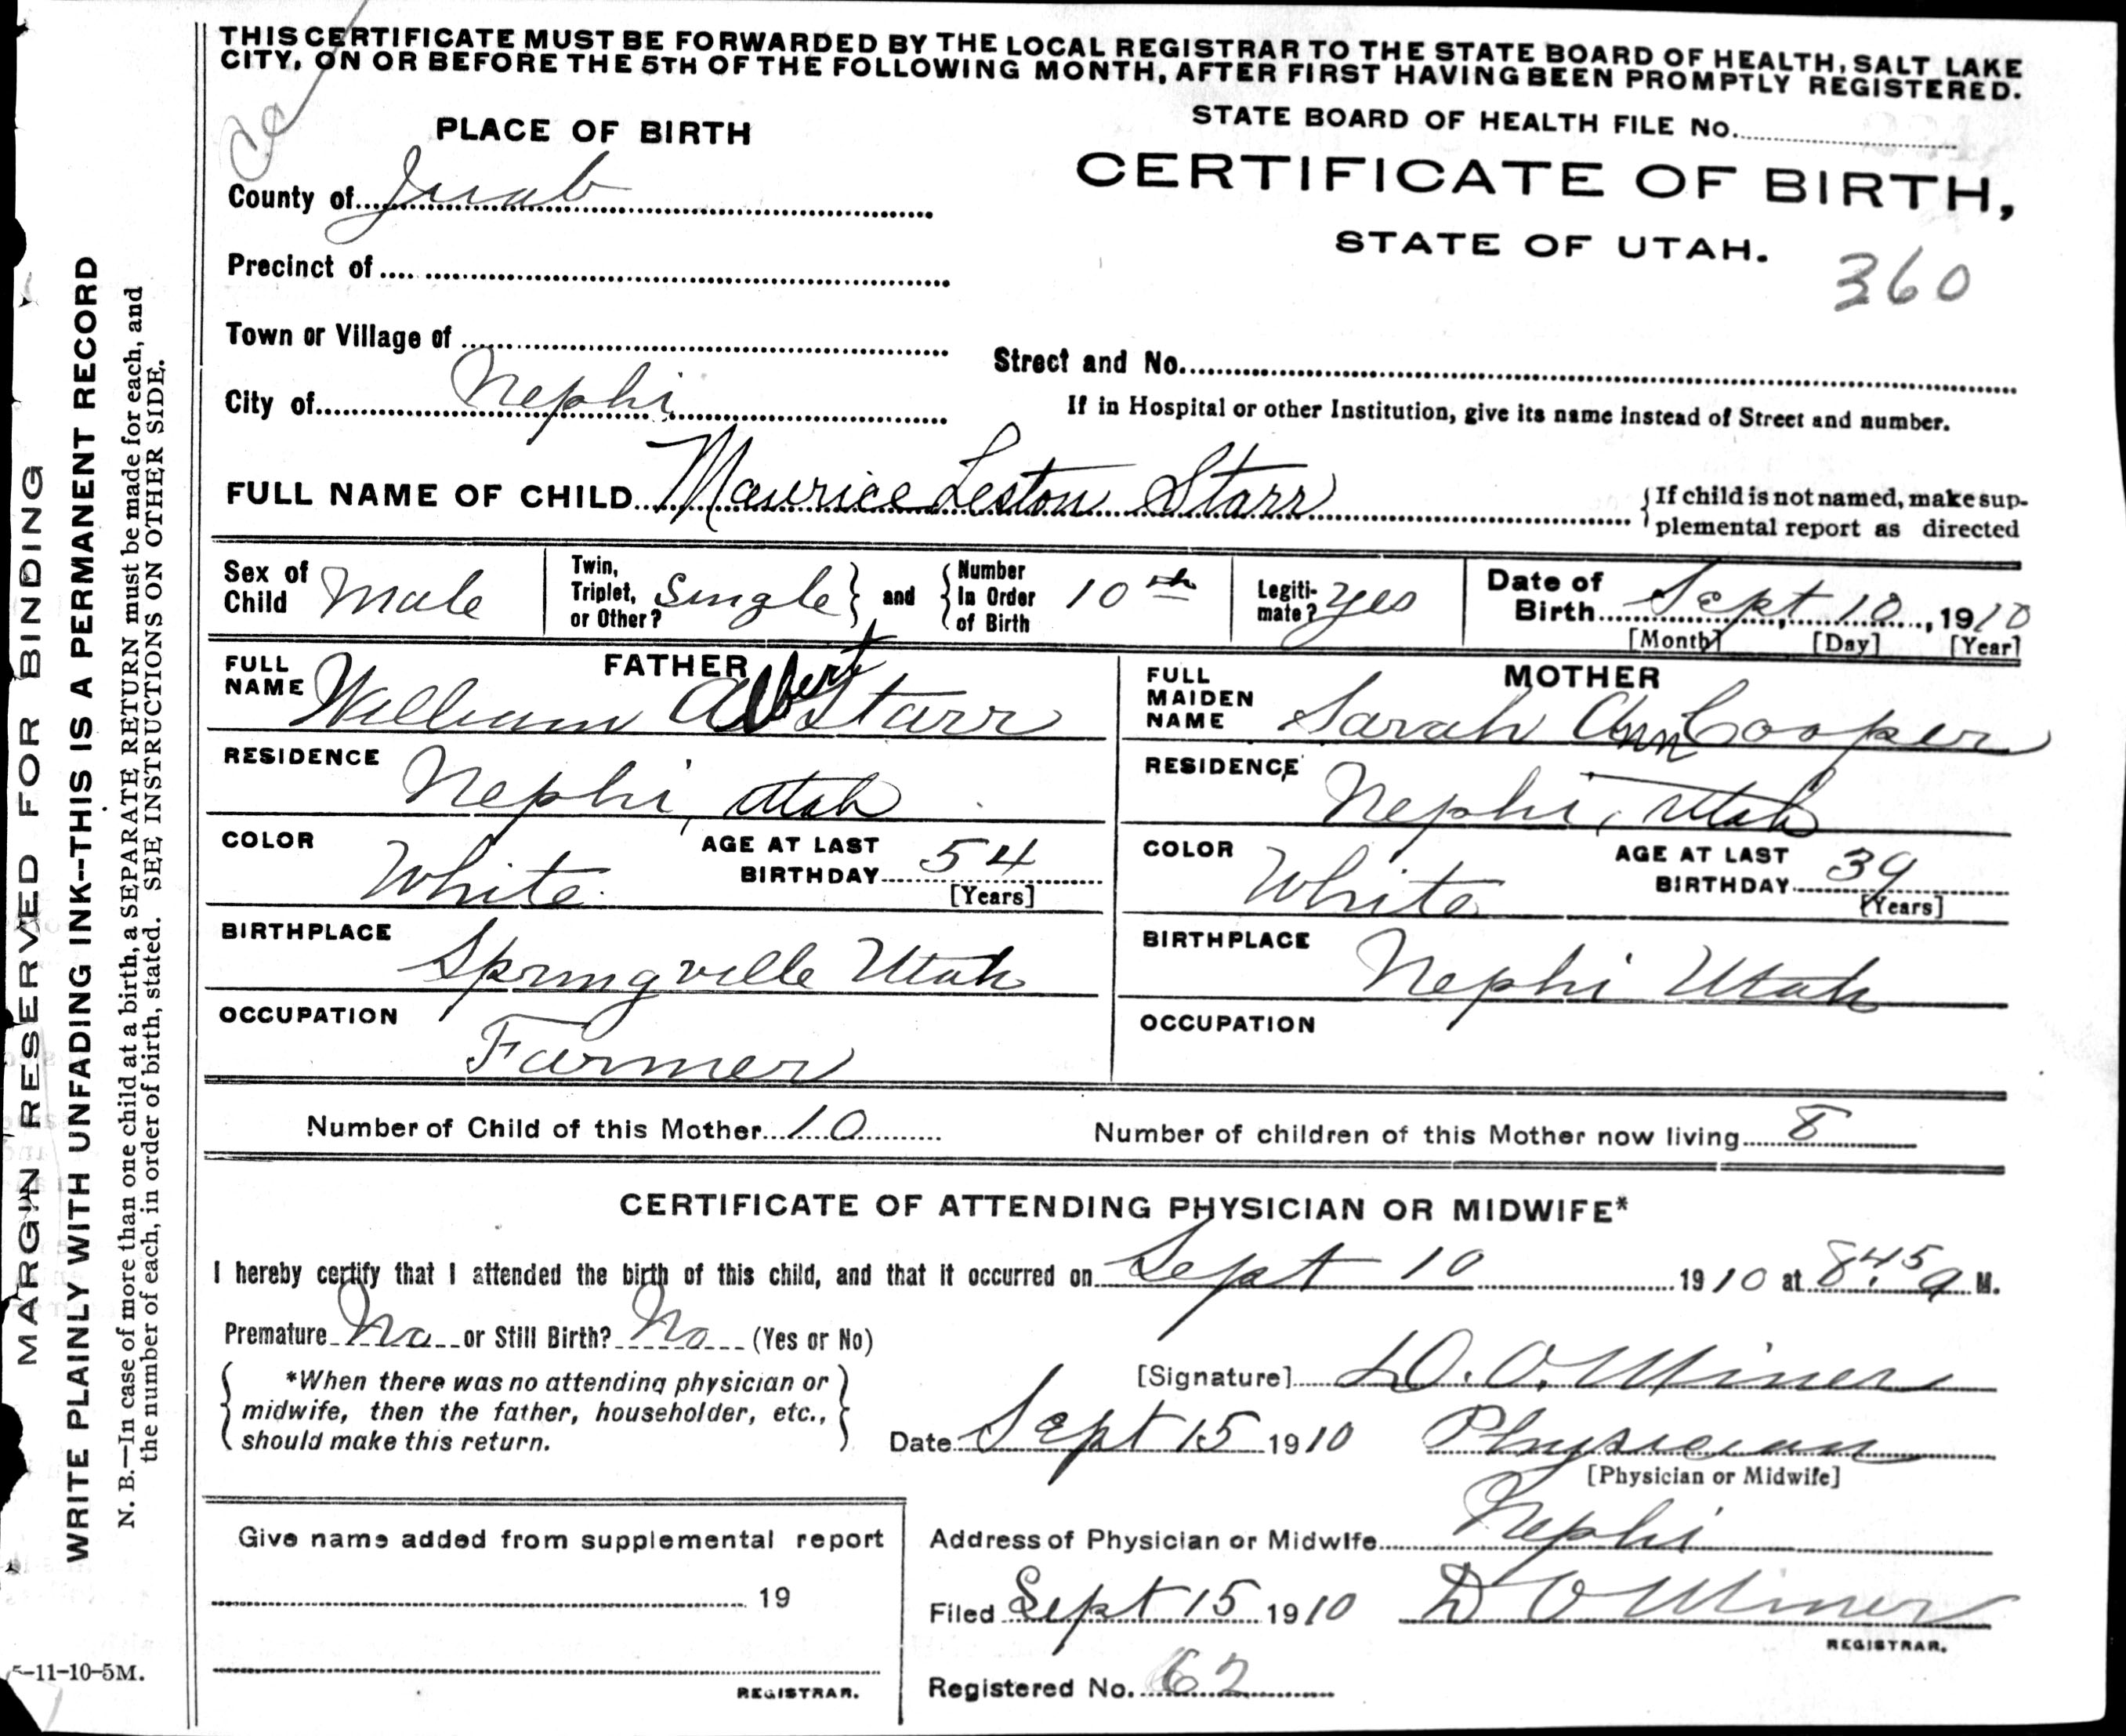 THIS CERTIFICATE MUST BE FORWARDED BY THE LOCAL REGISTRAR TO THE STATE BOARD OF HEALTH, SALT LAKE
CITY, ON OR BEFORE THE 5TH OF THE FOLLOWING MONTH, AFTER FIRST HAVING BEEN PROMPTLY REGISTERED.
PLACE OF BIRTH
County of Juab
Precinct of
Town or Village of
City of Nephi
STATE BOARD OF HEALTH FILE No.
CERTIFICATE OF BIRTH,
STATE OF UTAH.
360
Street and No.
If in Hospital or other Institution, give its name instead of Street and number.
FULL NAME OF CHILD Maurice Leston Starr
{ If child is not named, make sup-
plemental report as directed
Sex of
Child Male
Twin,
Triplet,
or Other? Single } and { Number
In Order
of Birth 10th
Legiti-
mate? yes
Date of
Birth Sept 10, 1910
[Month] [Day] [Year]
FATHER
FULL
NAME William Albert Starr
RESIDENCE Nephi, Utah
COLOR White
AGE AT LAST
BIRTHDAY 54
[Years]
BIRTHPLACE Springville Utah
OCCUPATION Farmer
MOTHER
FULL
MAIDEN
NAME Sarah Ann Cooper
RESIDENCE Nephi, Utah
COLOR White
AGE AT LAST
BIRTHDAY 39
[Years]
BIRTHPLACE Nephi Utah
OCCUPATION
Number of Child of this Mother 10
Number of children of this Mother now living 8
CERTIFICATE OF ATTENDING PHYSICIAN OR MIDWIFE*
I hereby certify that I attended the birth of this child, and that it occurred on Sept 10 1910 at 8.45 a M.
Premature No or Still Birth? No (Yes or No)
{ *When there was no attending physician or
midwife, then the father, householder, etc.,
should make this return. }
[Signature] D. O. Miner
Date Sept 15 1910 Physician
[Physician or Midwife]
Give name added from supplemental report
19
REGISTRAR.
Address of Physician or Midwife Nephi
Filed Sept 15 1910 D O Miner
REGISTRAR.
Registered No. 62
MARGIN RESERVED FOR BINDING
WRITE PLAINLY WITH UNFADING INK--THIS IS A PERMANENT RECORD
N. B.—In case of more than one child at a birth, a SEPARATE RETURN must be made for each, and
the number of each, in order of birth, stated. SEE INSTRUCTIONS ON OTHER SIDE.
5-11-10-5M.